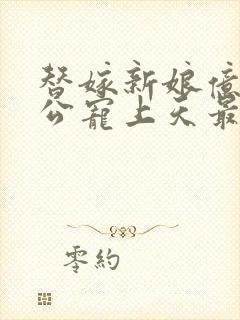 替嫁新娘億
公寵上天最
零約